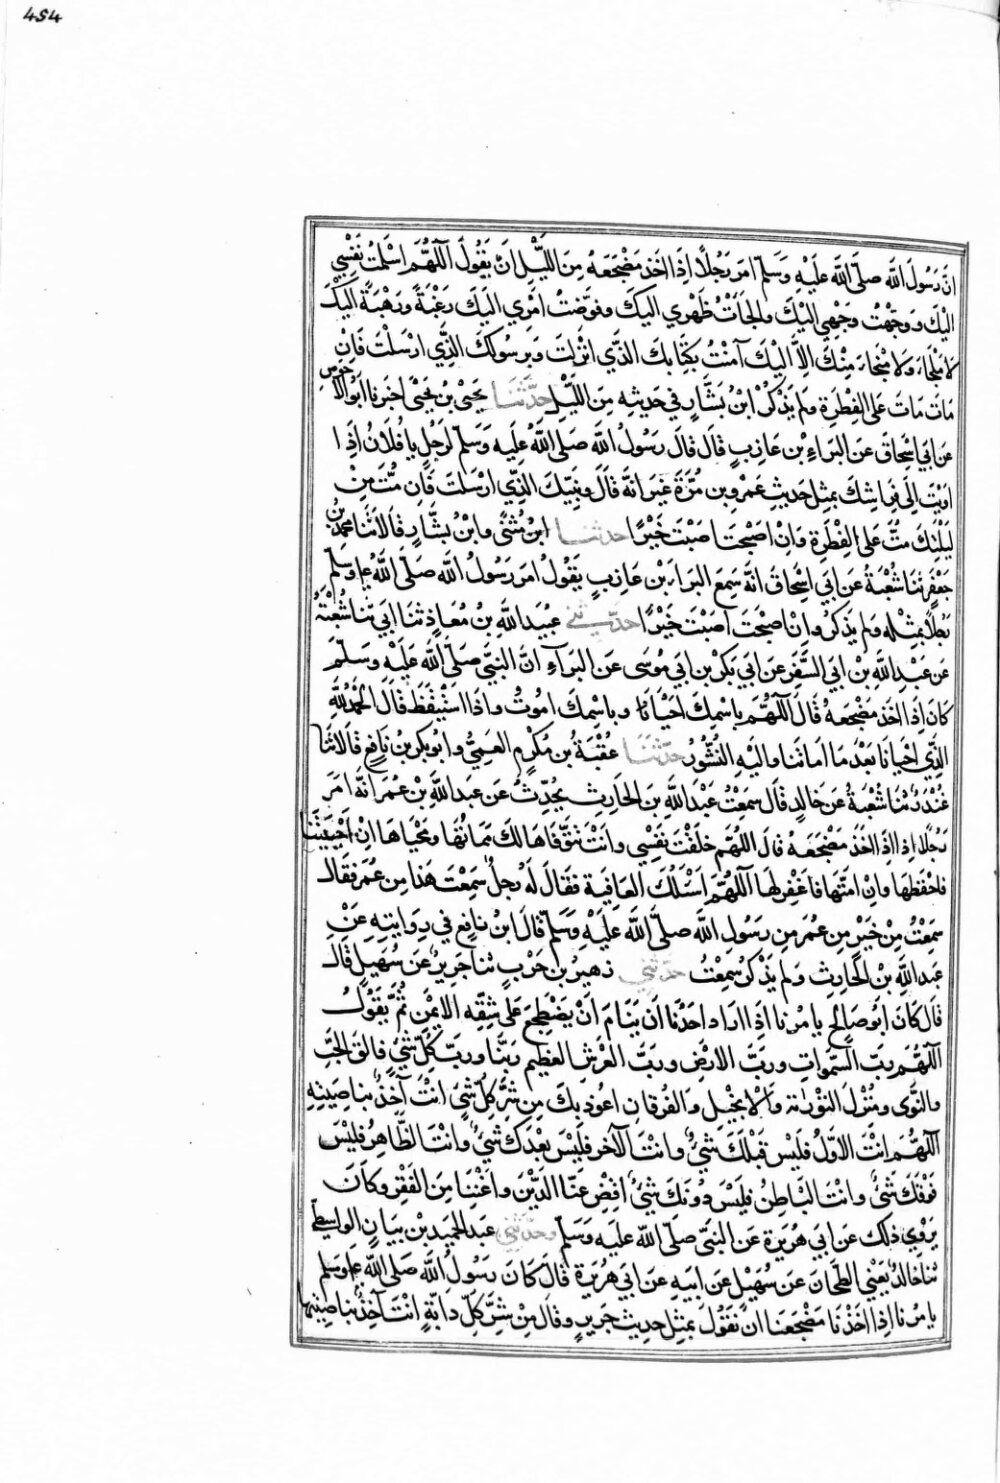 454
انَّ رَسُولَ اللَّه صلَّى اللَّه عَلَيْهِ وَسَلَّم امَرَ رَجُلًا اِذَا اخَذَ مَضْجَعَهُ مِنَ اللَّيْلِ انْ يَقُولَ اللَّهُمَّ اسْلَمْتُ نَفْسِي
اليْكَ وَوَجَّهْتُ وَجْهِي اليْكَ والجَأْتُ ظَهْرِي اليكَ وفوّضْتُ امْرِي اليَكَ رَغْبَةً وَرَهْبَةً اليْكَ
لا مَلْجَاءَ وَلا مَنْجَاءَ مِنْكَ الِاَّ اليْكَ آمَنْتُ بِكتَابكَ الذَّي انْزلتَ وَبرسُولكَ الذَّي ارْسَلْتَ فَاِن
مَاتَ مَاتَ عَلى الفِطْرةِ ولم يَذكُرْ ابْنُ بَشَّارٍ في حَديثِه مِنَ اللّيْلِ حدَّثَنَا يَحيْى بْن يَحْيَى اخبَرنا ابُو الاَحْوصِ
عَن ابي اسْحاقَ عَن البَراءِ بْن عَازبٍ قَال قَالَ رَسُولُ اللَّه صَلى اللَّهُ عَليَه وَسَلم لرَجُلٍ يا فُلَانُ اِذَا
اوَيْتَ اِلَى فِرَاشِكَ بمِثِل حَديثِ عَمْروِ بن مُرَّةَ غيَر انَّه قَالَ وَبنَبيِّكَ الذَّي ارْسَلتَ فَان مُتَّ مِنْ
لَيْلتِكَ مُتَّ عَلى الفِطْرَةِ وَانْ اصْبَحْتَ اصَبْتَ خَيْرًا حدثنا ابن مُثنىَّ وابْنُ بَشَّارٍ قَالَا ثَنَا محمّد بْنُ
جَعْفَرٍ ثنَا شُعْبَةُ عَن ابي اسْحَاقَ انَّه سَمِعَ البَراءَ بْن عَازبٍ يقُولُ امَرَ رَسُولُ اللَّه صَلَّى اللَّهُ عم وسَلّم
رَجُلًا بمِثْلِه ولم يَذكُر وانْ اصْبَحتَ اصَبْتَ خَيْرًا حَدّثني عبيَد اللَّه بْنُ مُعَاذٍ ثنَا ابي ثنَا شُعْبَةُ
عَن عَبْدِ اللَّه بْن ابي السَّفَرِ عَن ابي بَكْرِ بن ابي مُوسَى عَن البَرآءِ انَّ النَّبيَّ صَلَّى اللَّه عَلَيْه وسَلَّم
كَانَ اِذَا اخَذَ مَضْجَعَهُ قَالَ اللَّهُمَّ باسْمِكَ احْيَا وباسْمِكَ امُوتُ واذَا اسْتَيْقَظَ قَالَ الحَمدُ للّهِ
الذَّي احْيانَا بَعْدَ مَا امَاتنَا واليْهِ النُّشُورُ حدَّثنَا عُقْبَةُ بن مُكرَمٍ العَمّيُّ وابُو بكرِ بْن نَافِعٍ قَالَا ثنَا
غُنْدَرٌ ثنَا شُعْبَةُ عَن خَالدٍ قَال سَمِعْتُ عَبْدَ اللَّه بنَ الحَارثِ يُحدِّثُ عَن عبدِ اللَّه بْن عُمَرَ انَّه امَرَ
رَجُلًا اِذَا اخَذَ مَضْجَعَهُ قال اللهُمَّ خلَقْتَ نَفْسِي وانْتَ تتَوَفَّاهَا لكَ مَمَاتُهَا وَمَحْيَاهَا انْ احْيَيْتَهَا
فاحْفَظهَا وانْ امَتَّهَا فَاغْفِر لهَا اللّهُمَّ اسْئَلُكَ العَافِيَةَ فقَالَ لَهُ رجُلٌ سَمِعْتَ هَذا مِن عُمَرَ فقَالَ
سَمِعْتُ مِنْ خَيْرٍ مِن عُمَرَ مِن رَسُولِ اللَّه صلَّى اللَّه عَلَيْهِ وَسَلّم قالَ ابْن نَافِعٍ في رِوَايَتِه عَنْ
عَبد اللَّهِ بْن الحَارِثِ وَلم يَذْكُر سَمِعْتُ حَدّثني زهيرُ بن حَرْبٍ ثنا جَريرٌ عَن سُهيَلٍ قَالَ
قَال كَانَ ابَو صَالحٍ يامُرنا اِذَا ارَادَ احَدُنَا ان يَنَامَ انْ يَضْطجِعَ عَلى شِقّهِ الايمْنِ ثُمَّ يَقُولُ
اللّهُمَّ رَبّ السَّمواتِ وَربَّ الارْضِ وربَّ العَرْشِ العَظِيمِ ربَّنا وربَّ كُلِّ شَيْءٍ فالقَ الحَبِّ
والنَّوَى ومُنْزلَ التوْرَاةِ وَالانجْيلِ والفُرقَانِ اعوُذ بكَ مِن شَرِّ كلّ شَيْءٍ انْتَ آخِذٌ بنَاصِيَتِهِ
اللّهُمَّ انْتَ الاوَّلُ فليْسَ قَبْلَكَ شَيْءٌ وانْتَ الآخر فليْسَ بعْدَكَ شَيْءٌ وانْتَ الظَّاهِرُ فليْسَ
فوْقَكَ شَيْءٌ وانْتَ البَاطِنُ فليْسَ دُونَكَ شَيْءٌ اقْضِ عنَّا الدَّيْنَ واغْنِنَا مِنَ الفَقْرِ وَكَانَ
يَرْوِي ذلكَ عَن ابي هُرَيْرةَ عَن النَّبيّ صَلَّى اللَّه عَليَه وسَلَّم وحَدّثني عبدُ الحميَد بْن بيَانٍ الواسِطيّ
ثنا خَالدٌ يَعْني الطّحانَ عَن سُهَيْلٍ عَن ابَيهِ عَن ابي هُرَيْرَةَ قَال كَانَ رَسُولُ اللَّه صَلى اللَّه عم وَسَلم
يامُرنا اِذَا اخَذْنَا مَضْجَعَنا ان نَقُولَ بمِثِل حَديثِ جَريرٍ وقَالَ مِنْ شَرِّ كلِّ دَابَّةٍ انْتَ آخِذٌ بنَاصِيَتِهَا